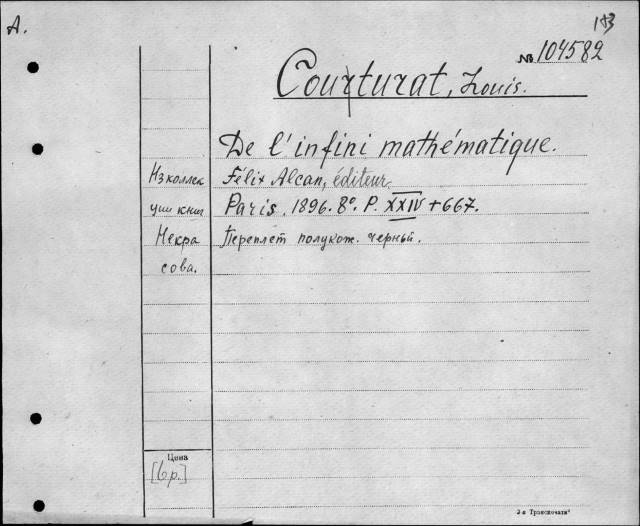 А.
183
№ 104582
Courturat, Louis.
De l'infini mathématique.
Из коллек Félix Alcan, éditeur.
ции книг Paris, 1896. 8º. P. XXIV + 667.
Некра Переплет полукож. черный.
сова.
Цена
[6 р.]
3-я Транспечать